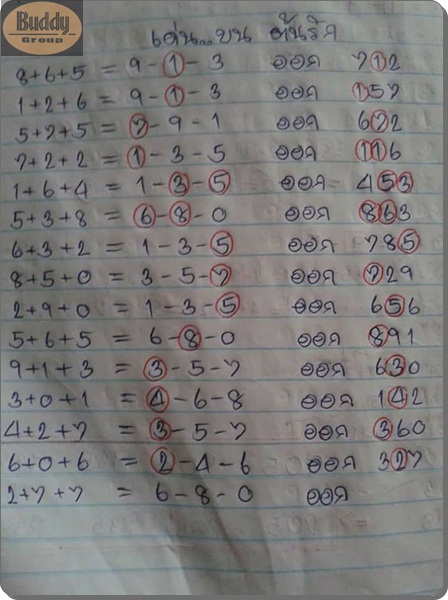 Buddy
Group
เด่น..บน ต้นริค
8+6+5 = 9-1-3 ออก 712
1+2+6 = 9-1-3 ออก 157
5+7+5 = 7-9-1 ออก 672
7+2+2 = 1-3-5 ออก 116
1+6+4 = 1-3-5 ออก 453
5+3+8 = 6-8-0 ออก 863
6+3+2 = 1-3-5 ออก 785
8+5+0 = 3-5-7 ออก 729
2+9+0 = 1-3-5 ออก 656
5+6+5 = 6-8-0 ออก 891
9+1+3 = 3-5-7 ออก 630
3+0+1 = 4-6-8 ออก 142
4+2+7 = 3-5-7 ออก 360
6+0+6 = 2-4-6 ออก 327
2+7+7 = 6-8-0 ออก